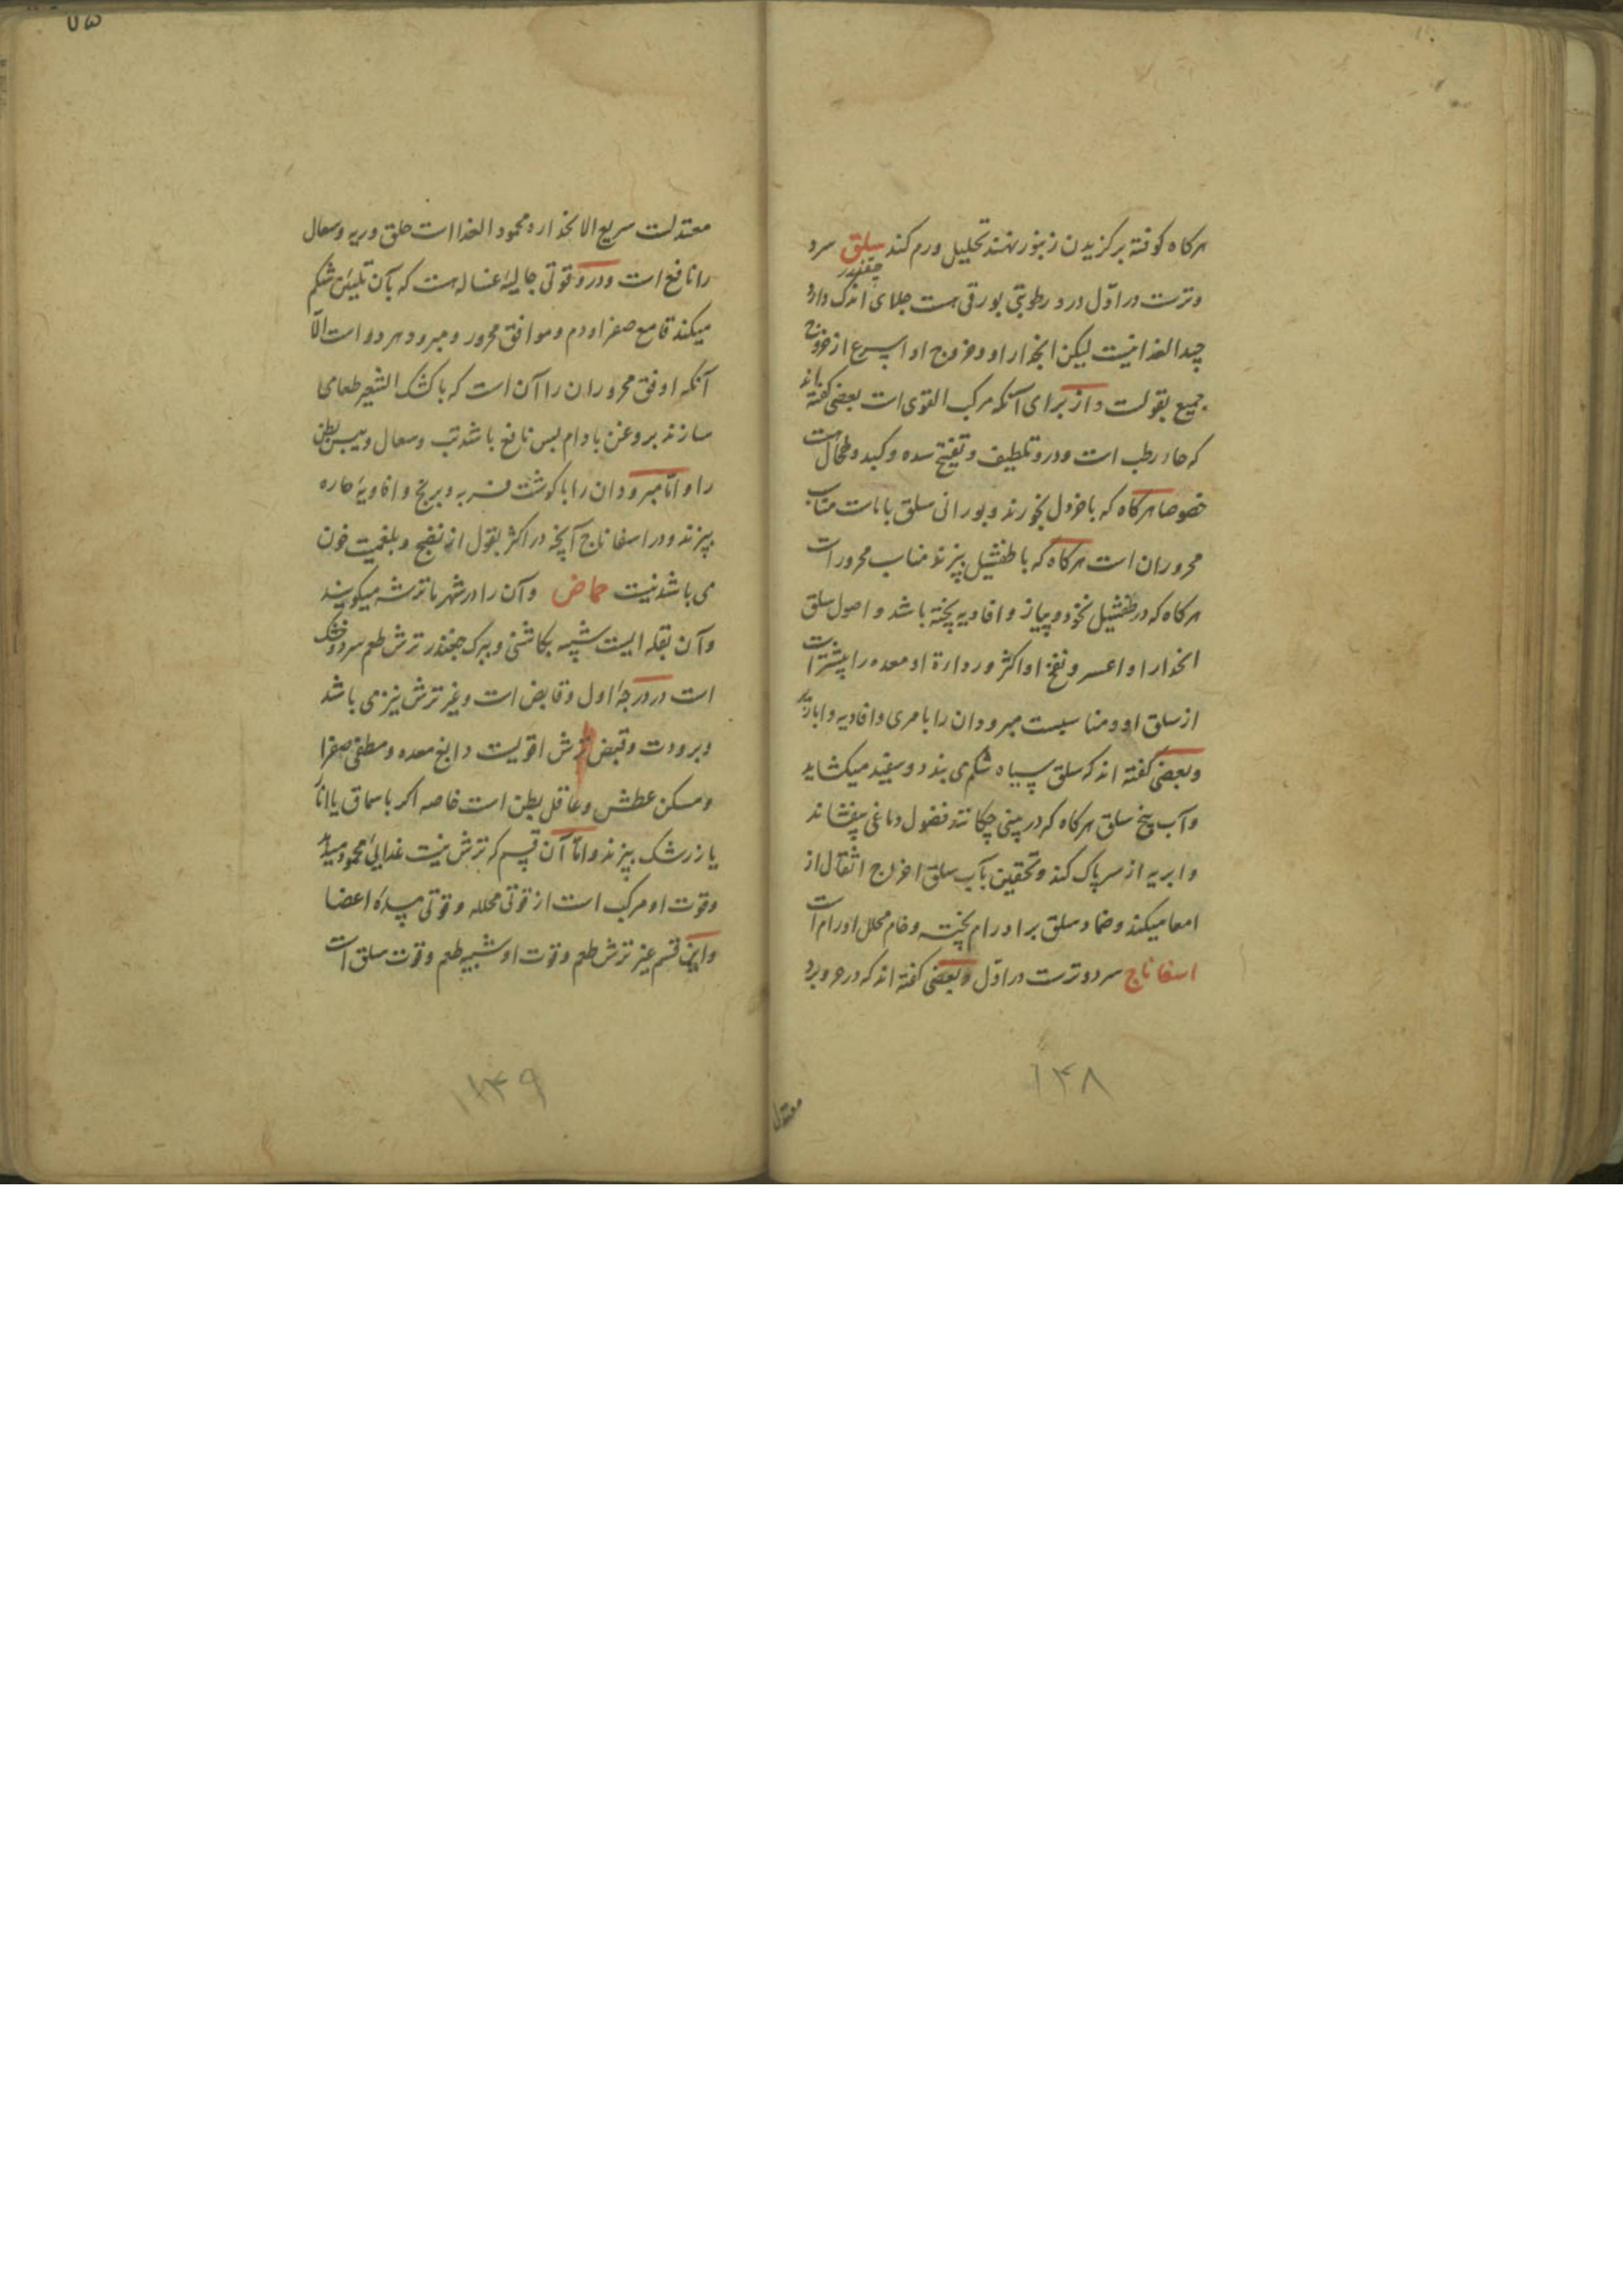 هرکاه کوفته برکزیدن زنبور نهند تحلیل ورم کند سلق سرد
چغندر
وترست در اول و درو رطوبتی بورقی هست جلای اندک دارد
جیدالغذا نیست لیکن انحدار او و خروج او اسرع از خروج
جمیع بقولست و از برای آنکه مرکب القوی است بعضی کفته اند
که حار رطب است و درو تلطیف و تفتیح سده و کبد و طحال است
خصوصا هرکاه که با خردل بخورند و بورانی سلق با ماست مناسب
محروران است هرکاه که با طفشیل پزند مناسب محرور است
هرکاه که در طفشیل نخود و پیاز و افاویه پخته باشد و اصول سلق
انحدار او اعسر و نفخ او اکثر و رداءة او معده را بیشتر است
از سلق او و مناسبست مبرودان را با مری و افاویه و ابازیر
وبعضی کفته اند که سلق سیاه شکم می بندد و سفید میکشاید
وآب بیخ سلق هرکاه که در بینی چکانند فضول دماغی بیفشاند
وابریه از سر پاک کند و تحقین بآب سلق اخراج اثفال از
امعا میکند وضماد سلق بر اورام پخته و خام محلل اورام است
اسفاناج سرد وترست در اول وبعضی کفته اند که در حر و برد
معتدل
۱۴۸
۷۵
معتدلست سریع الانحدار و محمود الغذا است حلق وریه وسعال
را نافع است ودرو قوتی جالیهٔ غساله هست که بآن تلیین شکم
میکند قامع صفرا و دم و موافق محرور و مبرود هر دو است الا
آنکه اوفق محروران را آن است که با کشک الشعیر طعامی
سازند بروغن بادام بس نافع باشد تب وسعال ویبس بطن
را و اما مبرودان را با کوشت فربه و برنج و افاویهٔ حاره
پزند و در اسفاناج آنچه در اکثر بقول از نفخ و بلغمیت خون
می باشد نیست حماض وآن را در شهر ما ترشه میکویند
وآن بقله ایست شبیه بکاسنی و ببرک چغندر ترش طعم سرد و خشک
است در درجهٔ اول و قابض است وغیر ترش نیز می باشد
وبرودت وقبض ترش اقویست دابغ معده و مطفی صفرا
ومسکن عطش وعاقل بطن است خاصه اکر با سماق یا انار
یا زرشک پزند واما آن قسم که ترش نیست غذایی محمود میدهد
وقوت او مرکب است از قوتی محلله وقوتی مبردهٔ اعضا
واین قسم غیر ترش طعم وقوت او شبیه طعم وقوت سلق است
۱۴۹